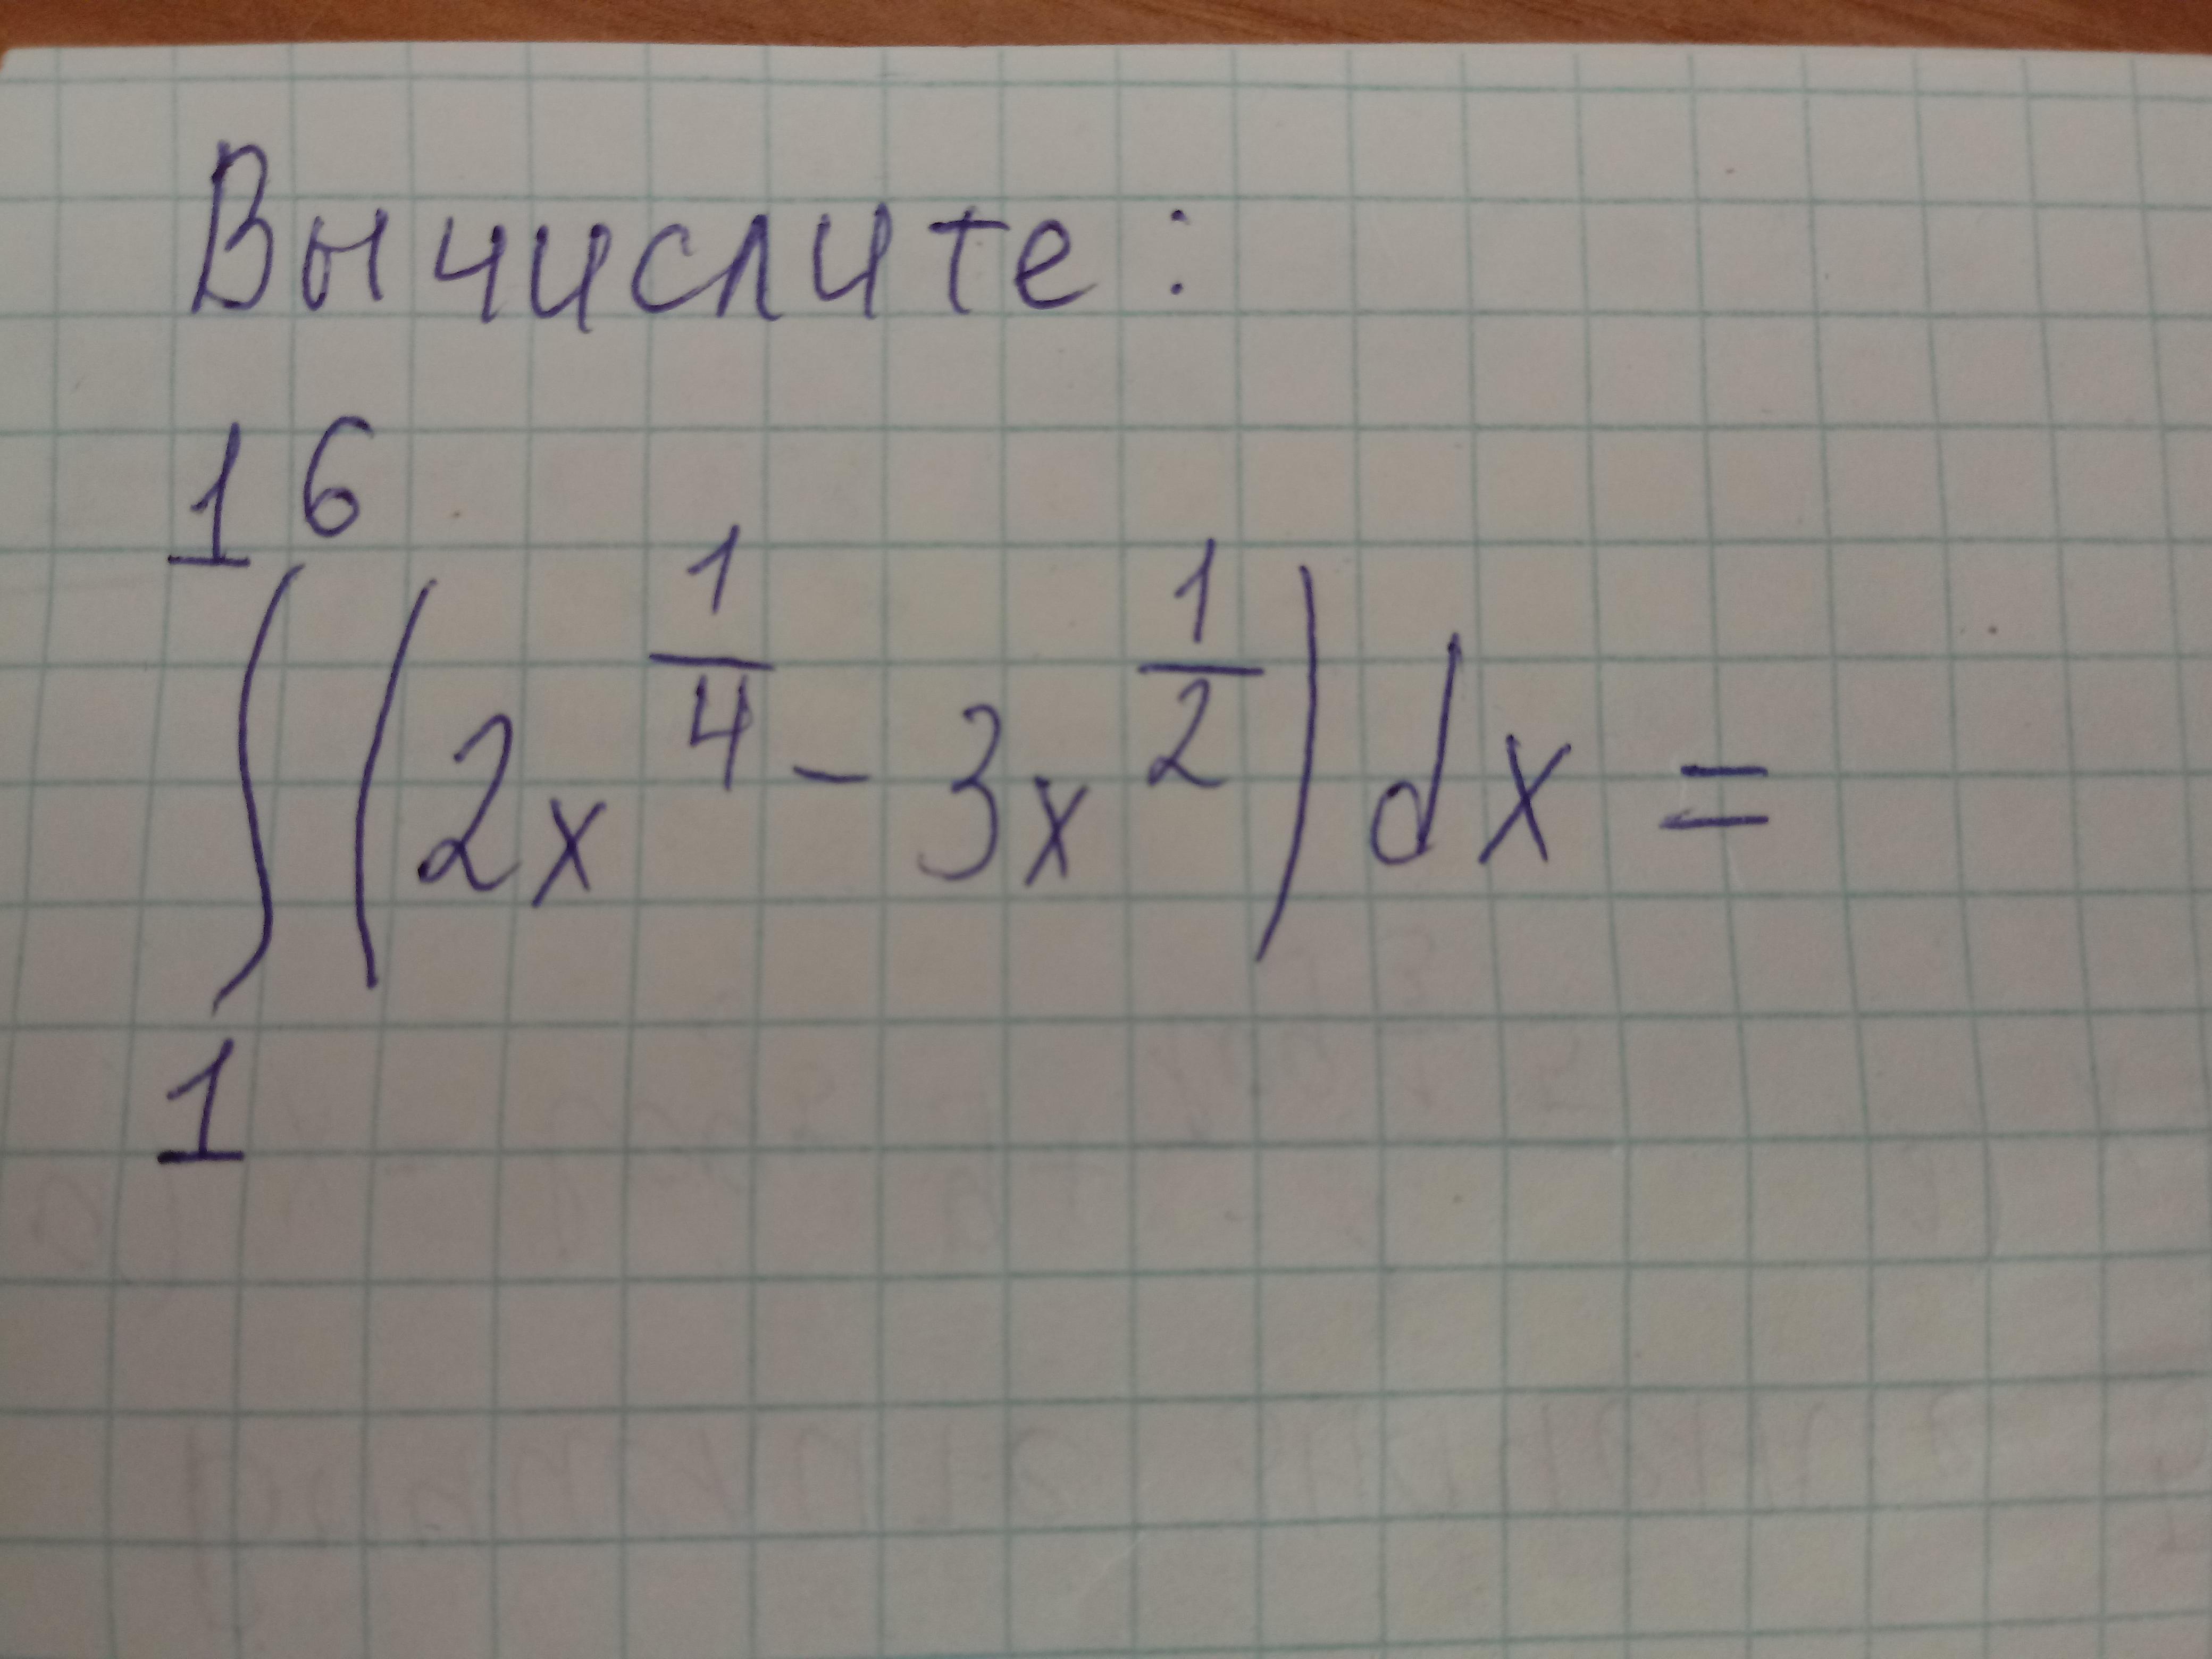 Вычислите:
16
∫ (2x^(1/4) - 3x^(1/2)) dx =
1